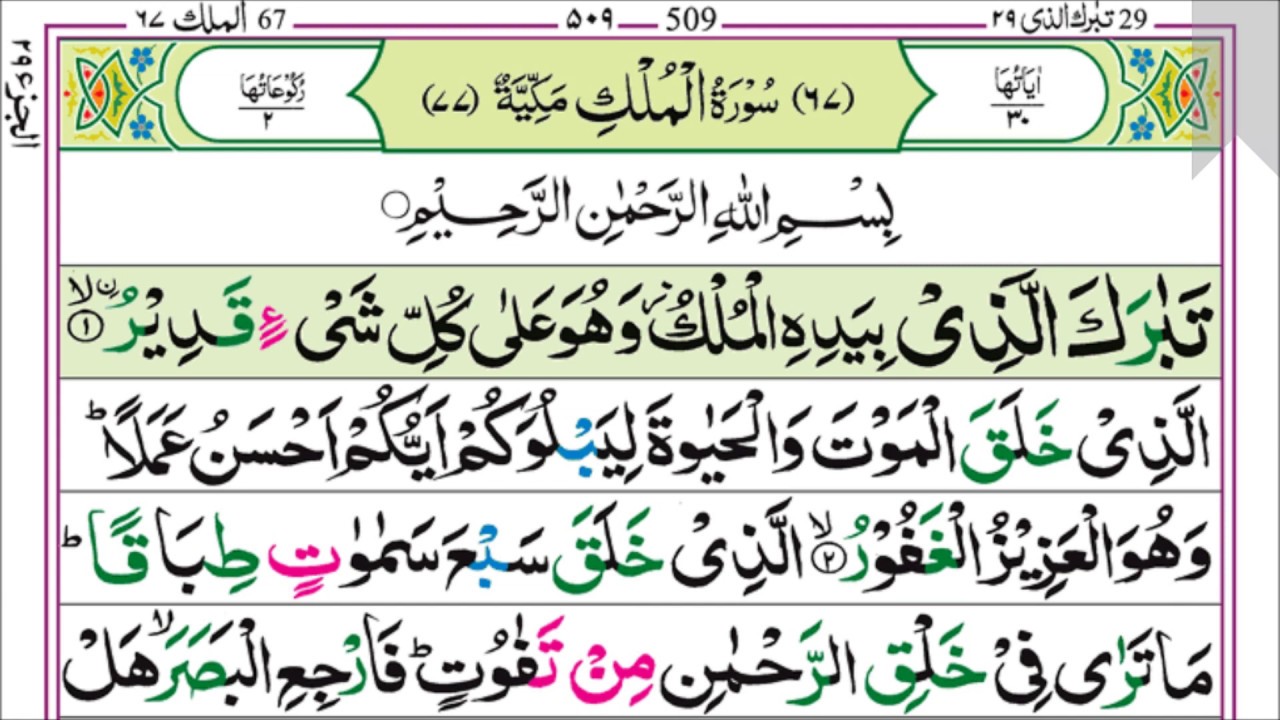 29 تبٰرك الذی ٢٩ 509 ٥٠٩ 67 الملك ٦٧
الجزء ٢٩
اٰیَاتُهَا ٣٠ (٦٧) سُوْرَةُ الْمُلْكِ مَكِّیَّةٌ (٧٧) رُكُوْعَاتُهَا ٢
بِسْمِ اللّٰهِ الرَّحْمٰنِ الرَّحِیْمِ
تَبٰرَكَ الَّذِیْ بِیَدِهِ الْمُلْكُ ز وَهُوَ عَلٰی كُلِّ شَیْءٍ قَدِیْرُ ۙ ن ١
الَّذِیْ خَلَقَ الْمَوْتَ وَالْحَیٰوةَ لِیَبْلُوَكُمْ اَیُّكُمْ اَحْسَنُ عَمَلًا ؕ
وَهُوَ الْعَزِیْزُ الْغَفُوْرُ ۙ ٢ الَّذِیْ خَلَقَ سَبْعَ سَمٰوٰتٍ طِبَاقًا ؕ
مَا تَرٰی فِیْ خَلْقِ الرَّحْمٰنِ مِنْ تَفٰوُتٍ ؕ فَارْجِعِ الْبَصَرَ ۙ هَلْ